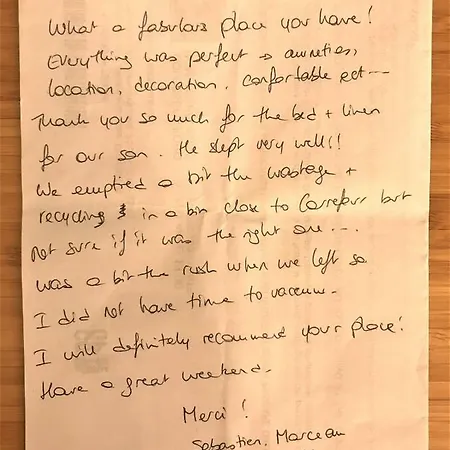 What a fabulous place you have!
Everything was perfect → amneties,
location, decoration, confortable ect---
Thank you so much for the bed + linen
for our son. He slept very well!!
We emptied a bit the wastage +
recycling & in a bin close to Carrefour but
not sure if it was the right one....
was a bit the rush when we left so
I did not have time to vacuum.
I will definitely recommend your place!
Have a great weekend.
Merci!
Sebastien, Marceau